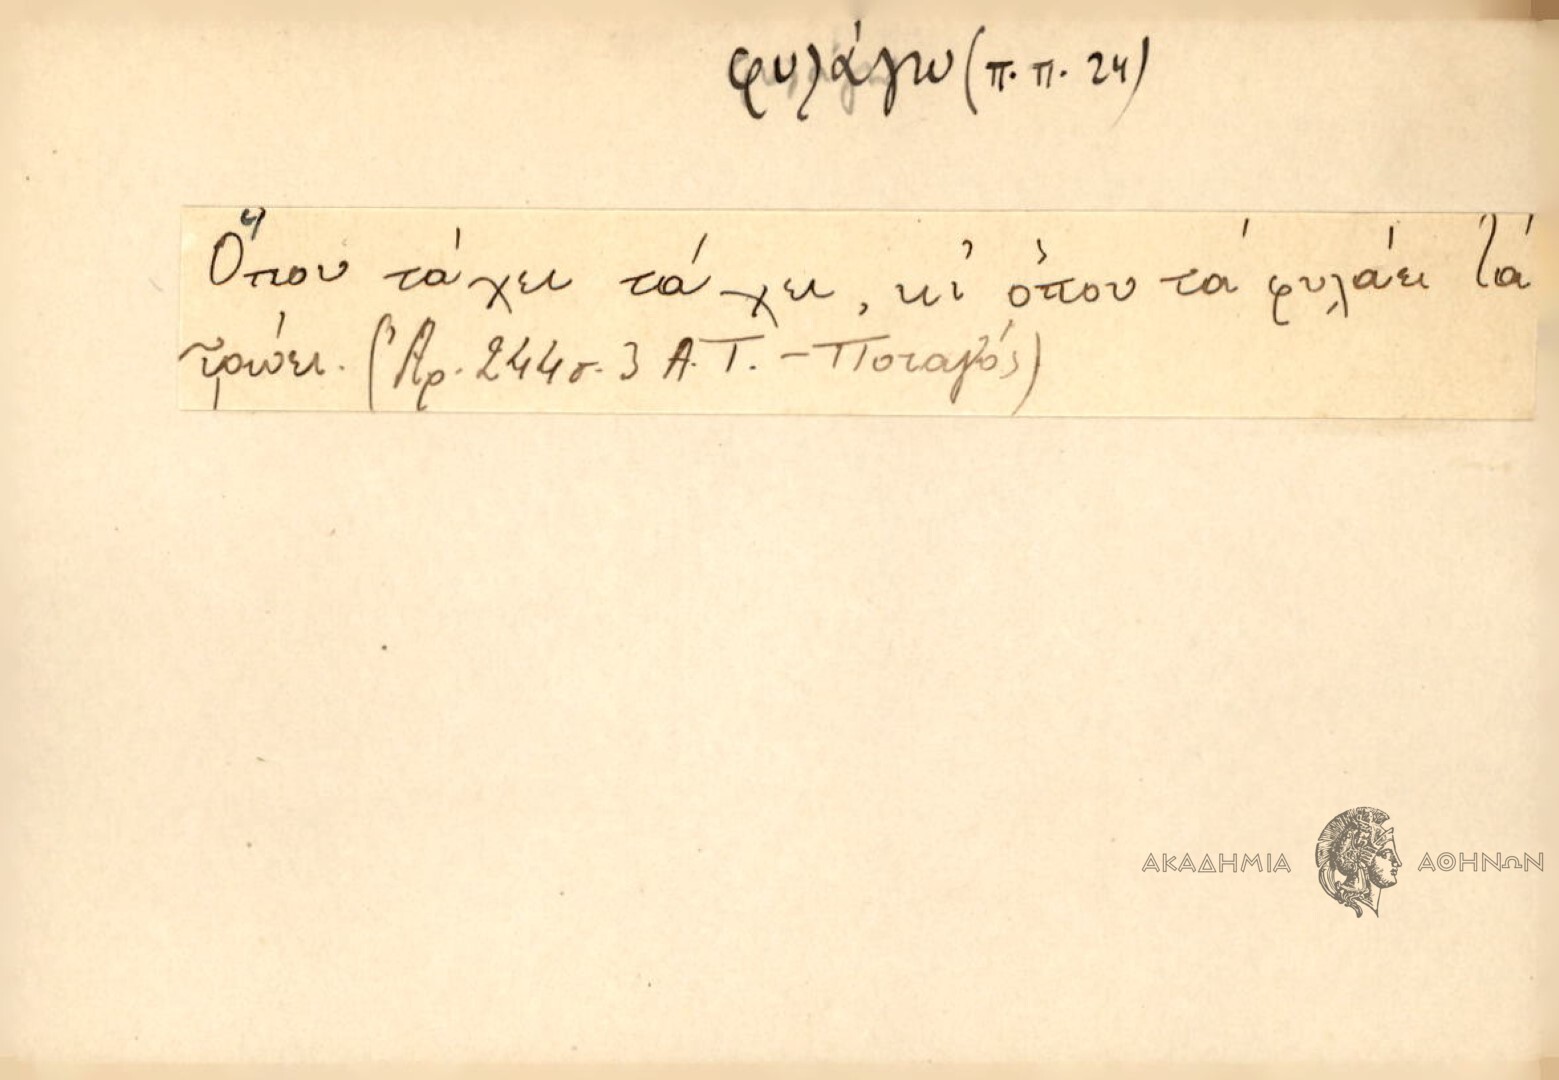 φυλάγω (π. π. 24)
Ὅπου τἄχει τἄχει, κι ὅπου τά φυλάει τά
τρώει. (Ἀρ. 244 σ. 3 Α.Τ. –
ΑΚΑΔΗΜΙΑ ΑΘΗΝΩΝ